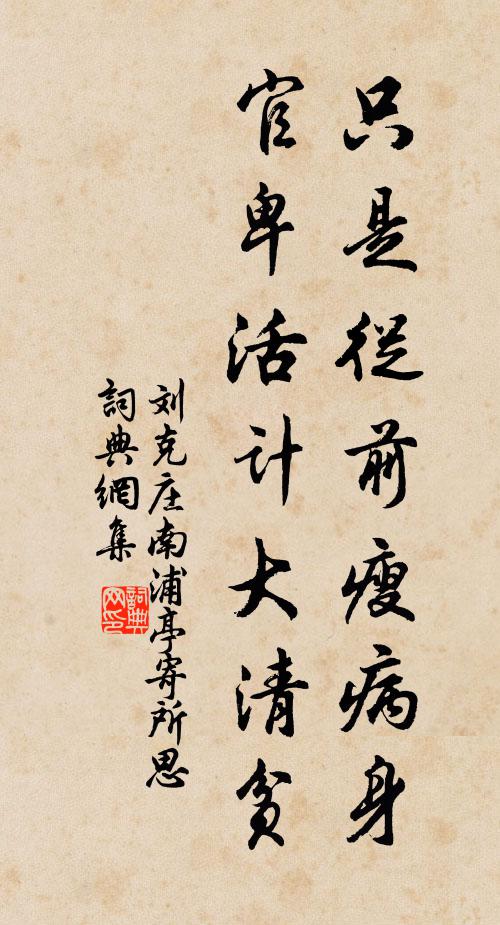 只是從前瘦病身
官卑活計大清貧
刘克庄南浦亭寄所思
詞典網集
詞典
网印